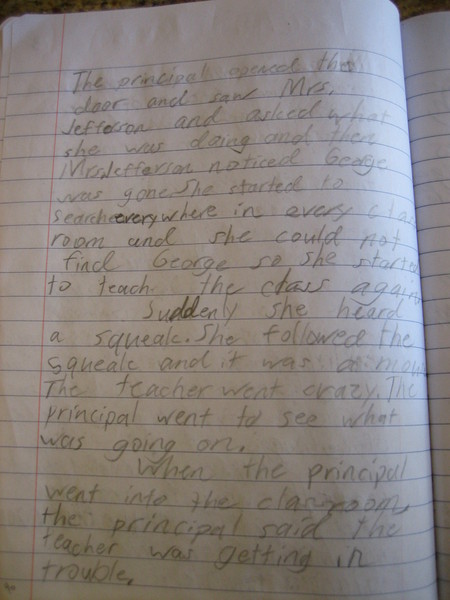 The principal opened the
door and saw Mrs.
Jefferson and asked what
she was doing and then
Mrs.Jefferson noticed George
was gone.She started to
search everywhere in every class
room and she could not
find George so she started
to teach the class again
Suddenly she heard
a squeak.She followed the
squeak and it was a mouse
The teacher went crazy.The
principal went to see what
was going on.
When the principal
went into the classroom,
the principal said the
teacher was getting in
trouble.